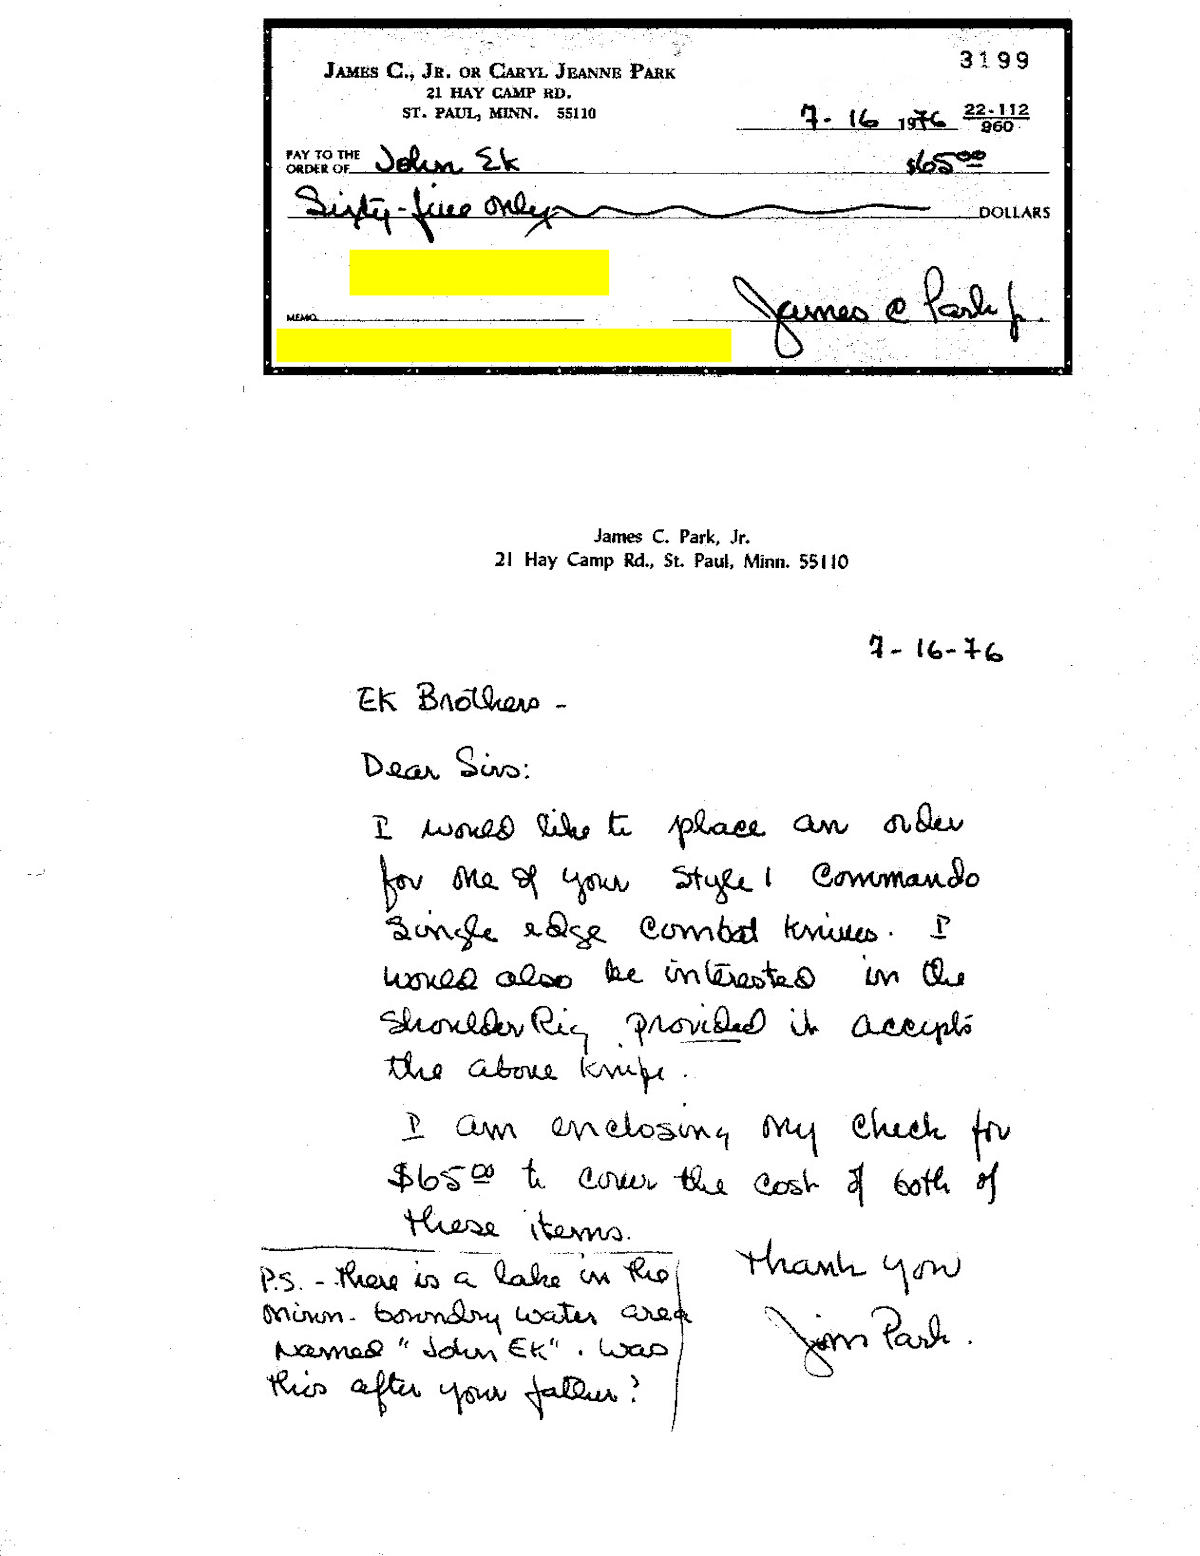 3199
JAMES C., JR. OR CARYL JEANNE PARK
21 HAY CAMP RD.
ST. PAUL, MINN. 55110
7-16 1976 22-112
960
PAY TO THE
ORDER OF John Ek $65.00
Sixty-five only DOLLARS
MEMO James C Park Jr.
James C. Park, Jr.
21 Hay Camp Rd., St. Paul, Minn. 55110
7-16-76
EK Brothers -
Dear Sirs:
I would like to place an order
for one of your Style 1 Commando
Single edge combat knives. I
would also be interested in the
Shoulder Rig provided it accepts
the above knife.
I am enclosing my check for
$65.00 to cover the cost of both of
these items.
Thank you
Jim Park.
P.S. - There is a lake in the
Minn. boundry water area
Named "John EK". Was
this after your father?